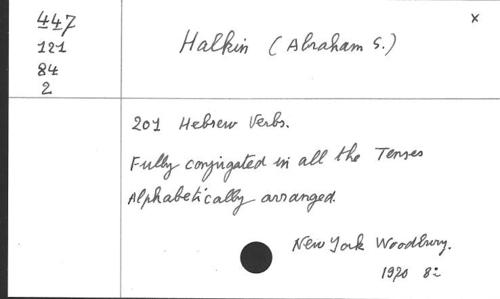 447
121
84
2
Halkin (Abraham S.)
x
201 Hebrew Verbs.
Fully conjugated in all the Tenses
Alphabetically arranged.
New York Woodbury.
1970 8: